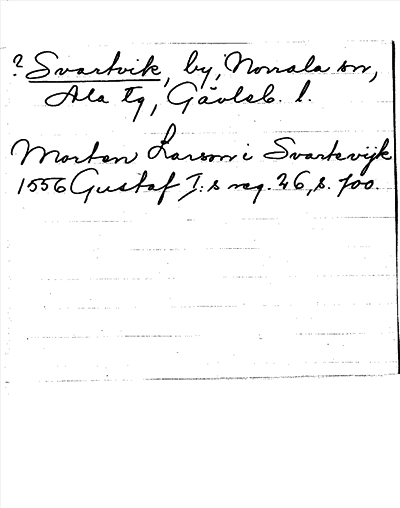 ? Svartvik, by, Norrala sn,
Ala tg, Gävleb. l.
Morten Larson i Svartevijk
1556 Gustaf I:s reg. 26, s. 700.